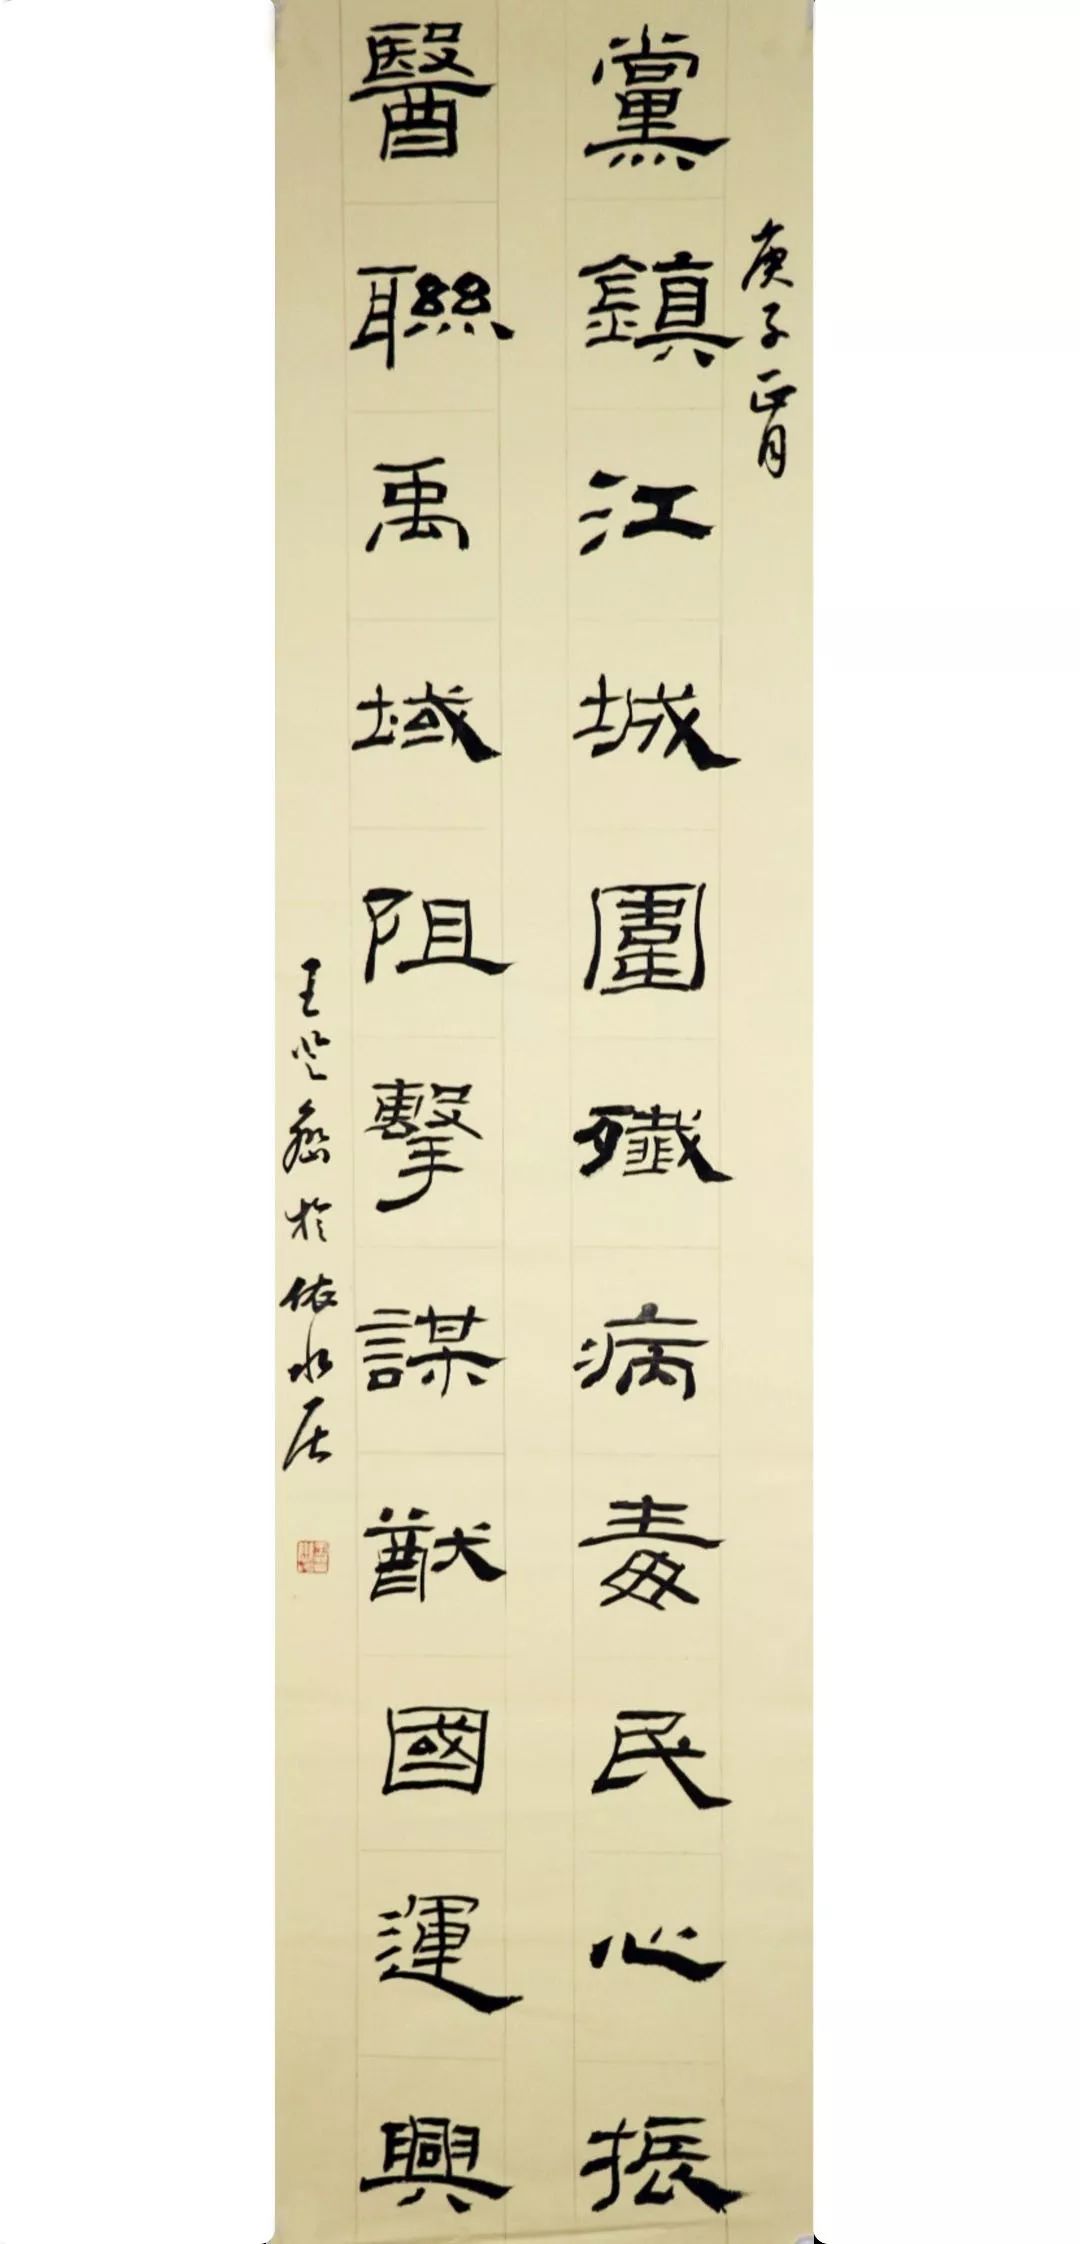 庚子正月
黨鎮江城圍殲病毒民心振
醫聯禹域阻擊謀猷國運興
王於依水居